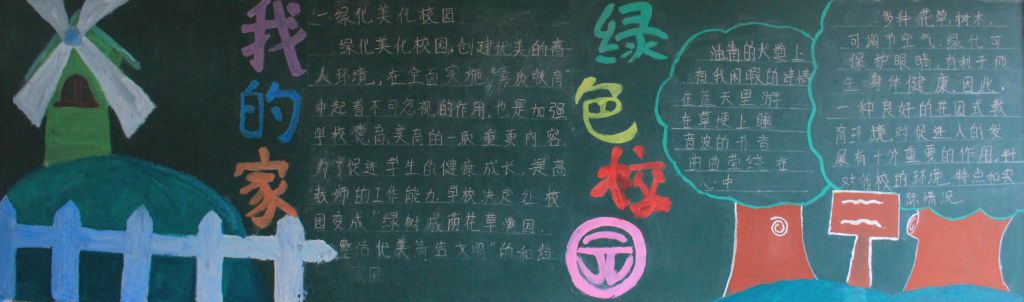 我的家
绿色校园
一.绿化美化校园
绿化美化校园,创建优美的育
人环境,在全面实施"素质教育"
中起着不可忽视的作用,也是加强
学校德育、美育的一项重要内容.
为了促进学生的健康成长,提高
教师的工作能力,学校决定让校
园变成"绿树成荫花草满园
整洁优美
的和谐
家园
油青的大道上
有我闲暇的
在蓝天里游
在草埂上睡
音波的
曲曲萦绕在
心中
多种花草,树木,
可调节空气.绿化可
保护眼睛,有利于师
生身体健康.因此,
一种良好的花园式教
育环境,对促进人的发
展有十分重要的作用.针
对我校的环境特点和实
际情况.